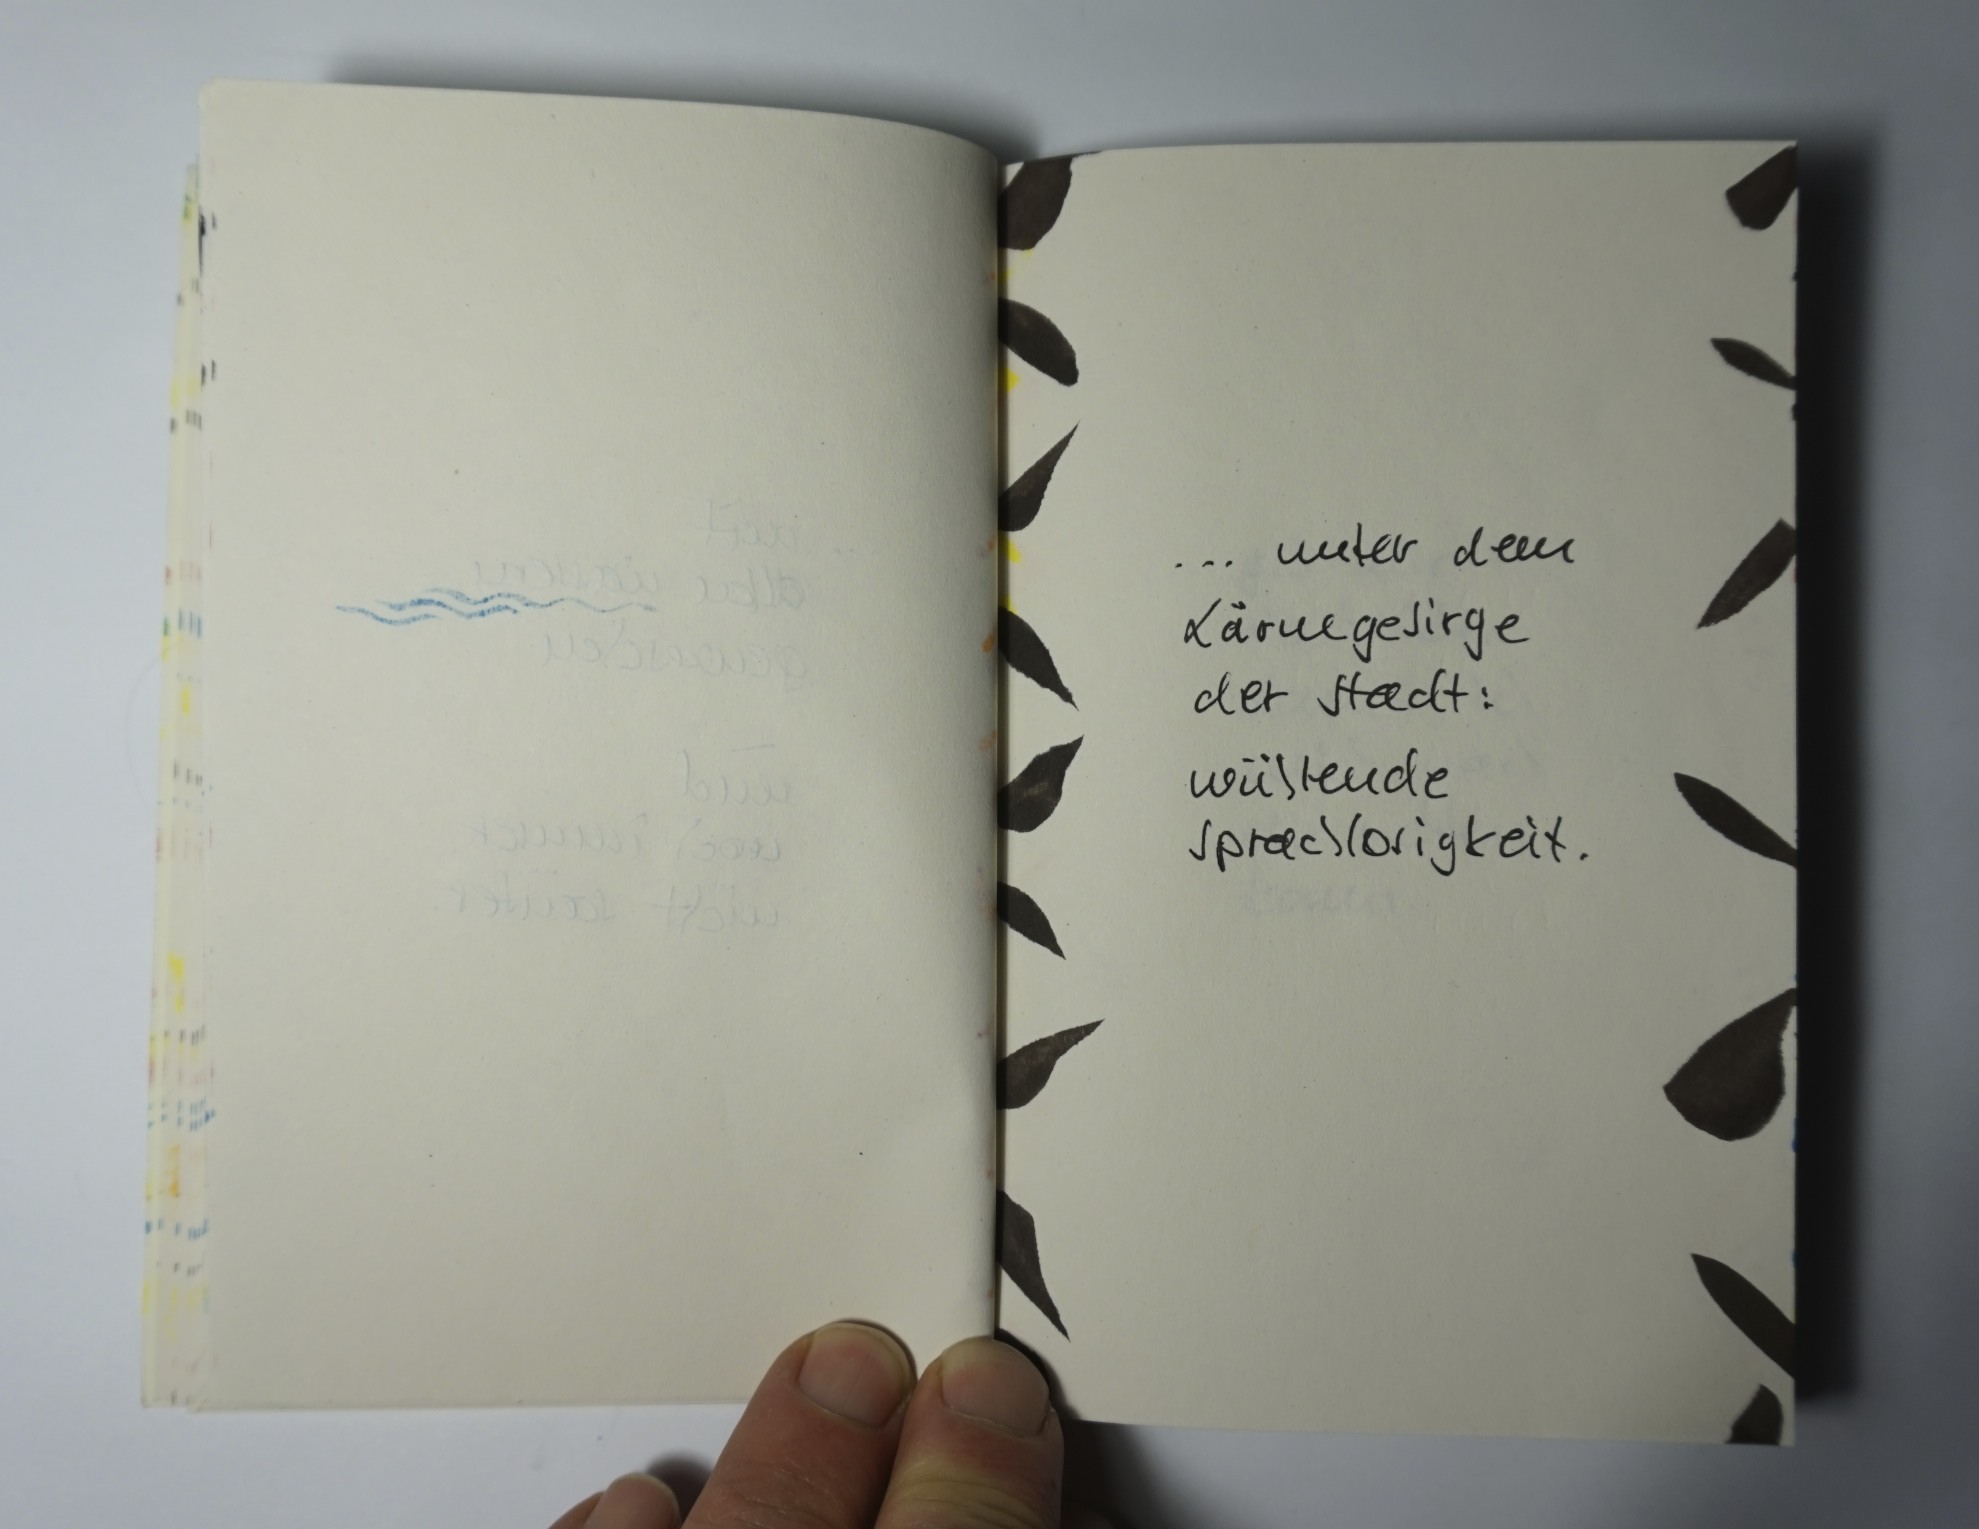 ... unter dem
Lärmgebirge
der stadt:
wüstende
sprachlosigkeit.